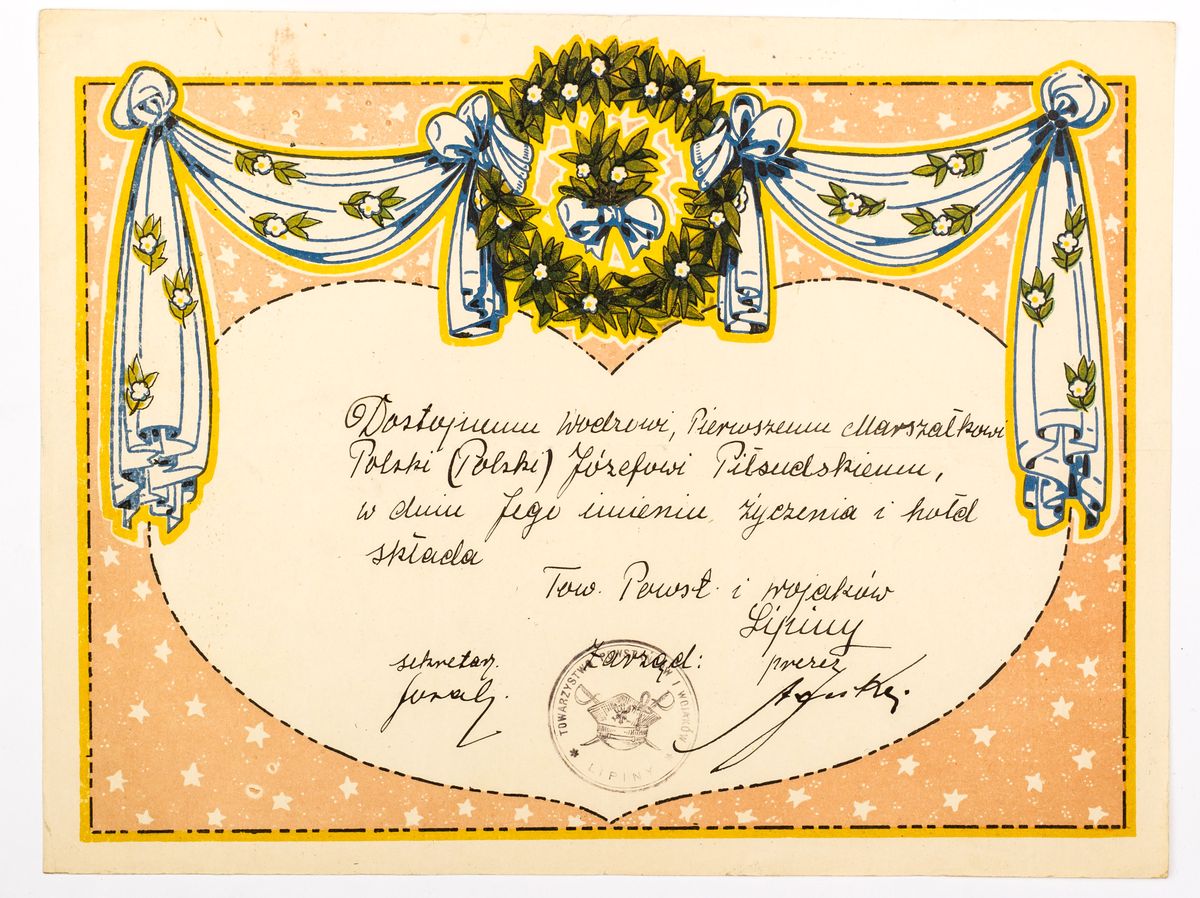 Dostojnemu Wodzowi, Pierwszemu Marszałkowi
Polski (Polski) Józefowi Piłsudskiemu,
w dniu Jego imienin życzenia i hołd
składa
Tow. Powst. i wojaków
Lipiny
sekretarz. Zarząd: prezes
TOWARZYSTWO POWSTAŃCÓW I WOJAKÓW
* LIPINY *